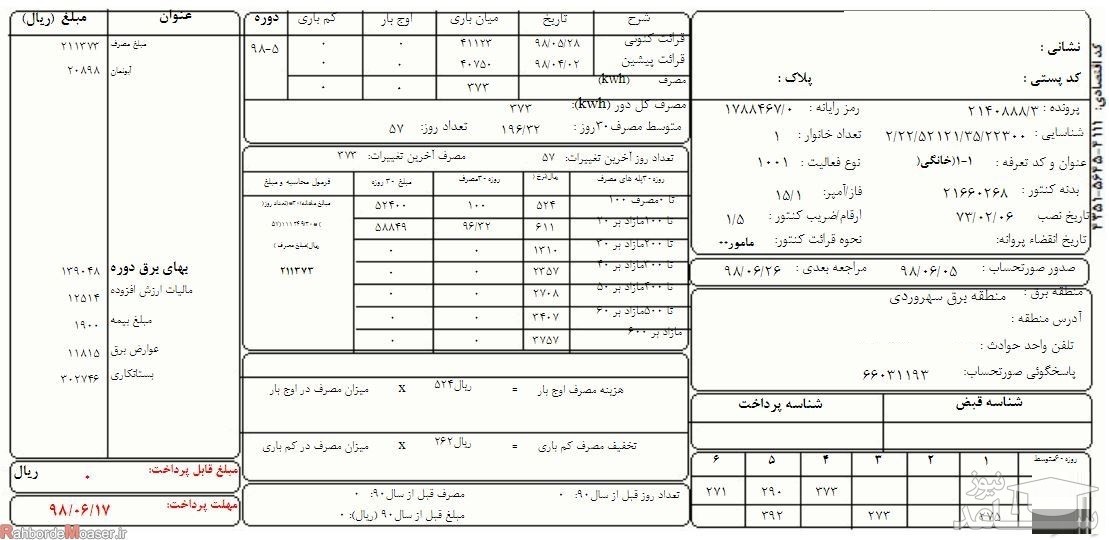 کد اقتصادی: ۴۱۱۱-۵۶۴۵-۴۳۵۱
نشانی :
کد پستی :
پلاک :
پرونده : ۲۱۴۰۸۸۸/۳
رمز رایانه : ۱۷۸۸۴۶۷/۰
شناسایی : ۲/۲۲/۵۲۱۲۱/۳۵/۲۲۳۰۰
تعداد خانوار : ۱
عنوان و کد تعرفه : ۱-۱(خانگی(
نوع فعالیت : ۱۰۰۱
بدنه کنتور : ۲۱۶۶۰۲۶۸
فاز/آمپر: ۱۵/۱
تاریخ نصب ۷۳/۰۲/۰۶
ارقام/ضریب کنتور : ۱/۵
تاریخ انقضاء پروانه:
نحوه قرائت کنتور: مامور۰۰
صدور صورتحساب : ۹۸/۰۶/۰۵
مراجعه بعدی : ۹۸/۰۶/۲۶
منطقه برق : منطقه برق سهروردی
آدرس منطقه :
تلفن واحد حوادث :
پاسخگوئی صورتحساب: ۶۶۰۳۱۱۹۳
شناسه قبض
شناسه پرداخت
۱ ۲ ۳ ۴ ۵ ۶
۳۷۳ ۲۹۰ ۲۷۱
۲۷۵ ۲۷۳ ۳۹۲
شرح تاریخ میان باری اوج بار کم باری دوره
قرائت کنونی ۹۸/۰۵/۲۸ ۴۱۱۲۳ ۰ ۰ ۹۸-۵
قرائت پیشین ۹۸/۰۴/۰۲ ۴۰۷۵۰ ۰ ۰
مصرف (kwh) ۳۷۳ ۰ ۰
مصرف کل دور (kwh): ۳۷۳
متوسط مصرف۳۰روز : ۱۹۶/۳۲ تعداد روز: ۵۷
تعداد روز آخرین تغییرات: ۵۷ مصرف آخرین تغییرات: ۳۷۳
روزه ۳۰پله های مصرف ریال(نرخ) روزه ۳۰مصرف مبلغ ۳۰ روزه فرمول محاسبه و مبلغ
تا ۰مصرف ۱۰۰ ۵۲۴ ۱۰۰ ۵۲۴۰۰
تا ۱۰۰مازاد بر ۲۰ ۶۱۱ ۹۶/۳۲ ۵۸۸۴۹
تا ۲۰۰مازاد بر ۳۰ ۱۳۱۰ ۰ ۰
ریال(مبلغ مصرف)
تا ۳۰۰مازاد بر ۴۰ ۲۳۵۷ ۰ ۰ ۲۱۱۳۷۳
تا ۴۰۰مازاد بر ۵۰ ۲۷۰۸ ۰ ۰
تا ۵۰۰مازاد بر ۶۰ ۳۴۰۷ ۰ ۰
مازاد بر ۶۰۰ ۳۷۵۷ ۰ ۰
هزینه مصرف اوج بار = ریال۵۲۴ x میزان مصرف در اوج بار
تخفیف مصرف کم باری = ریال۲۶۲ x میزان مصرف در کم باری
تعداد روز قبل از سال۹۰: ۰ مصرف قبل از سال۹۰: ۰
مبلغ قبل از سال۹۰ (ریال): ۰
عنوان مبلغ (ریال)
مبلغ مصرف ۲۱۱۳۷۳
آبونمان ۲۰۸۹۸
بهای برق دوره ۱۳۹۰۴۸
مالیات ارزش افزوده ۱۲۵۱۴
مبلغ بیمه ۱۹۰۰
عوارض برق ۱۱۸۱۵
بستانکاری ۳۰۲۷۴۶
مبلغ قابل پرداخت: ۰ ریال
مهلت پرداخت: ۹۸/۰۶/۱۷
RahbordeMoaser.ir